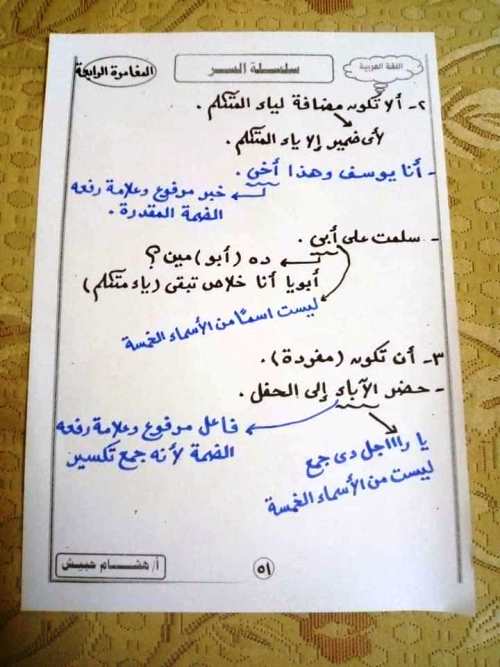 اللغة العربية
سلسلة السر
المغامرة الرابعة
٢- ألا تكون مضافة لياء المتكلم .
لأى ضمير إلا ياء المتكلم .
- أنا يوسف وهذا أخى .
خبر مرفوع وعلامة رفعه
الضمة المقدرة .
- سلمت على أبى .
ده (أبو) مين ؟
أبويا أنا خلاص تبقى (ياء متكلم)
ليست اسمًا من الأسماء الخمسة
٣- أن تكون (مفردة) .
- حضر الآباء إلى الحفل .
فاعل مرفوع وعلامة رفعه
الضمة لأنه جمع تكسير
يا رااااجل دى جمع
ليست من الأسماء الخمسة
٥١
أ/ هشام حبيش